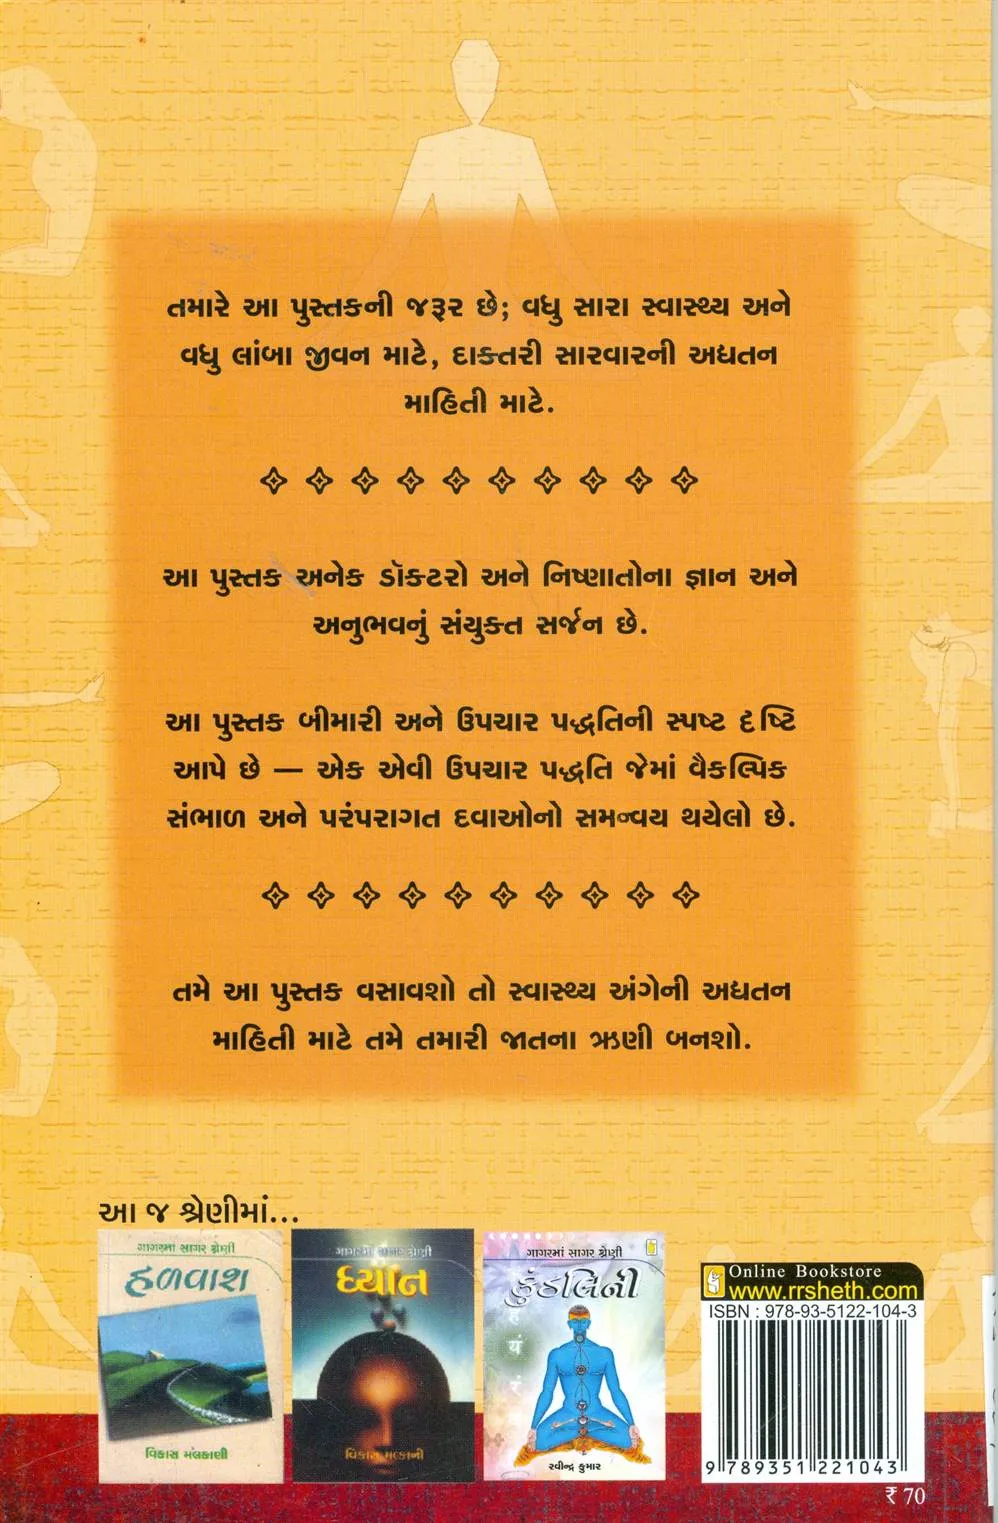 તમારે આ પુસ્તકની જરૂર છે; વધુ સારા સ્વાસ્થ્ય અને
વધુ લાંબા જીવન માટે, દાક્તરી સારવારની અદ્યતન
માહિતી માટે.
આ પુસ્તક અનેક ડૉક્ટરો અને નિષ્ણાતોના જ્ઞાન અને
અનુભવનું સંયુક્ત સર્જન છે.
આ પુસ્તક બીમારી અને ઉપચાર પદ્ધતિની સ્પષ્ટ દૃષ્ટિ
આપે છે — એક એવી ઉપચાર પદ્ધતિ જેમાં વૈકલ્પિક
સંભાળ અને પરંપરાગત દવાઓનો સમન્વય થયેલો છે.
તમે આ પુસ્તક વસાવશો તો સ્વાસ્થ્ય અંગેની અદ્યતન
માહિતી માટે તમે તમારી જાતના ઋણી બનશો.
આ જ શ્રેણીમાં...
ગાગરમાં સાગર શ્રેણી
હળવાશ
વિકાસ મલકાણી
ગાગરમાં સાગર શ્રેણી
ધ્યાન
વિકાસ મલ્કાની
ગાગરમાં સાગર શ્રેણી
કુંડલિની
યં
રવીન્દ્ર કુમાર
Online Bookstore
www.rrsheth.com
ISBN : 978-93-5122-104-3
9 789351 221043
₹ 70